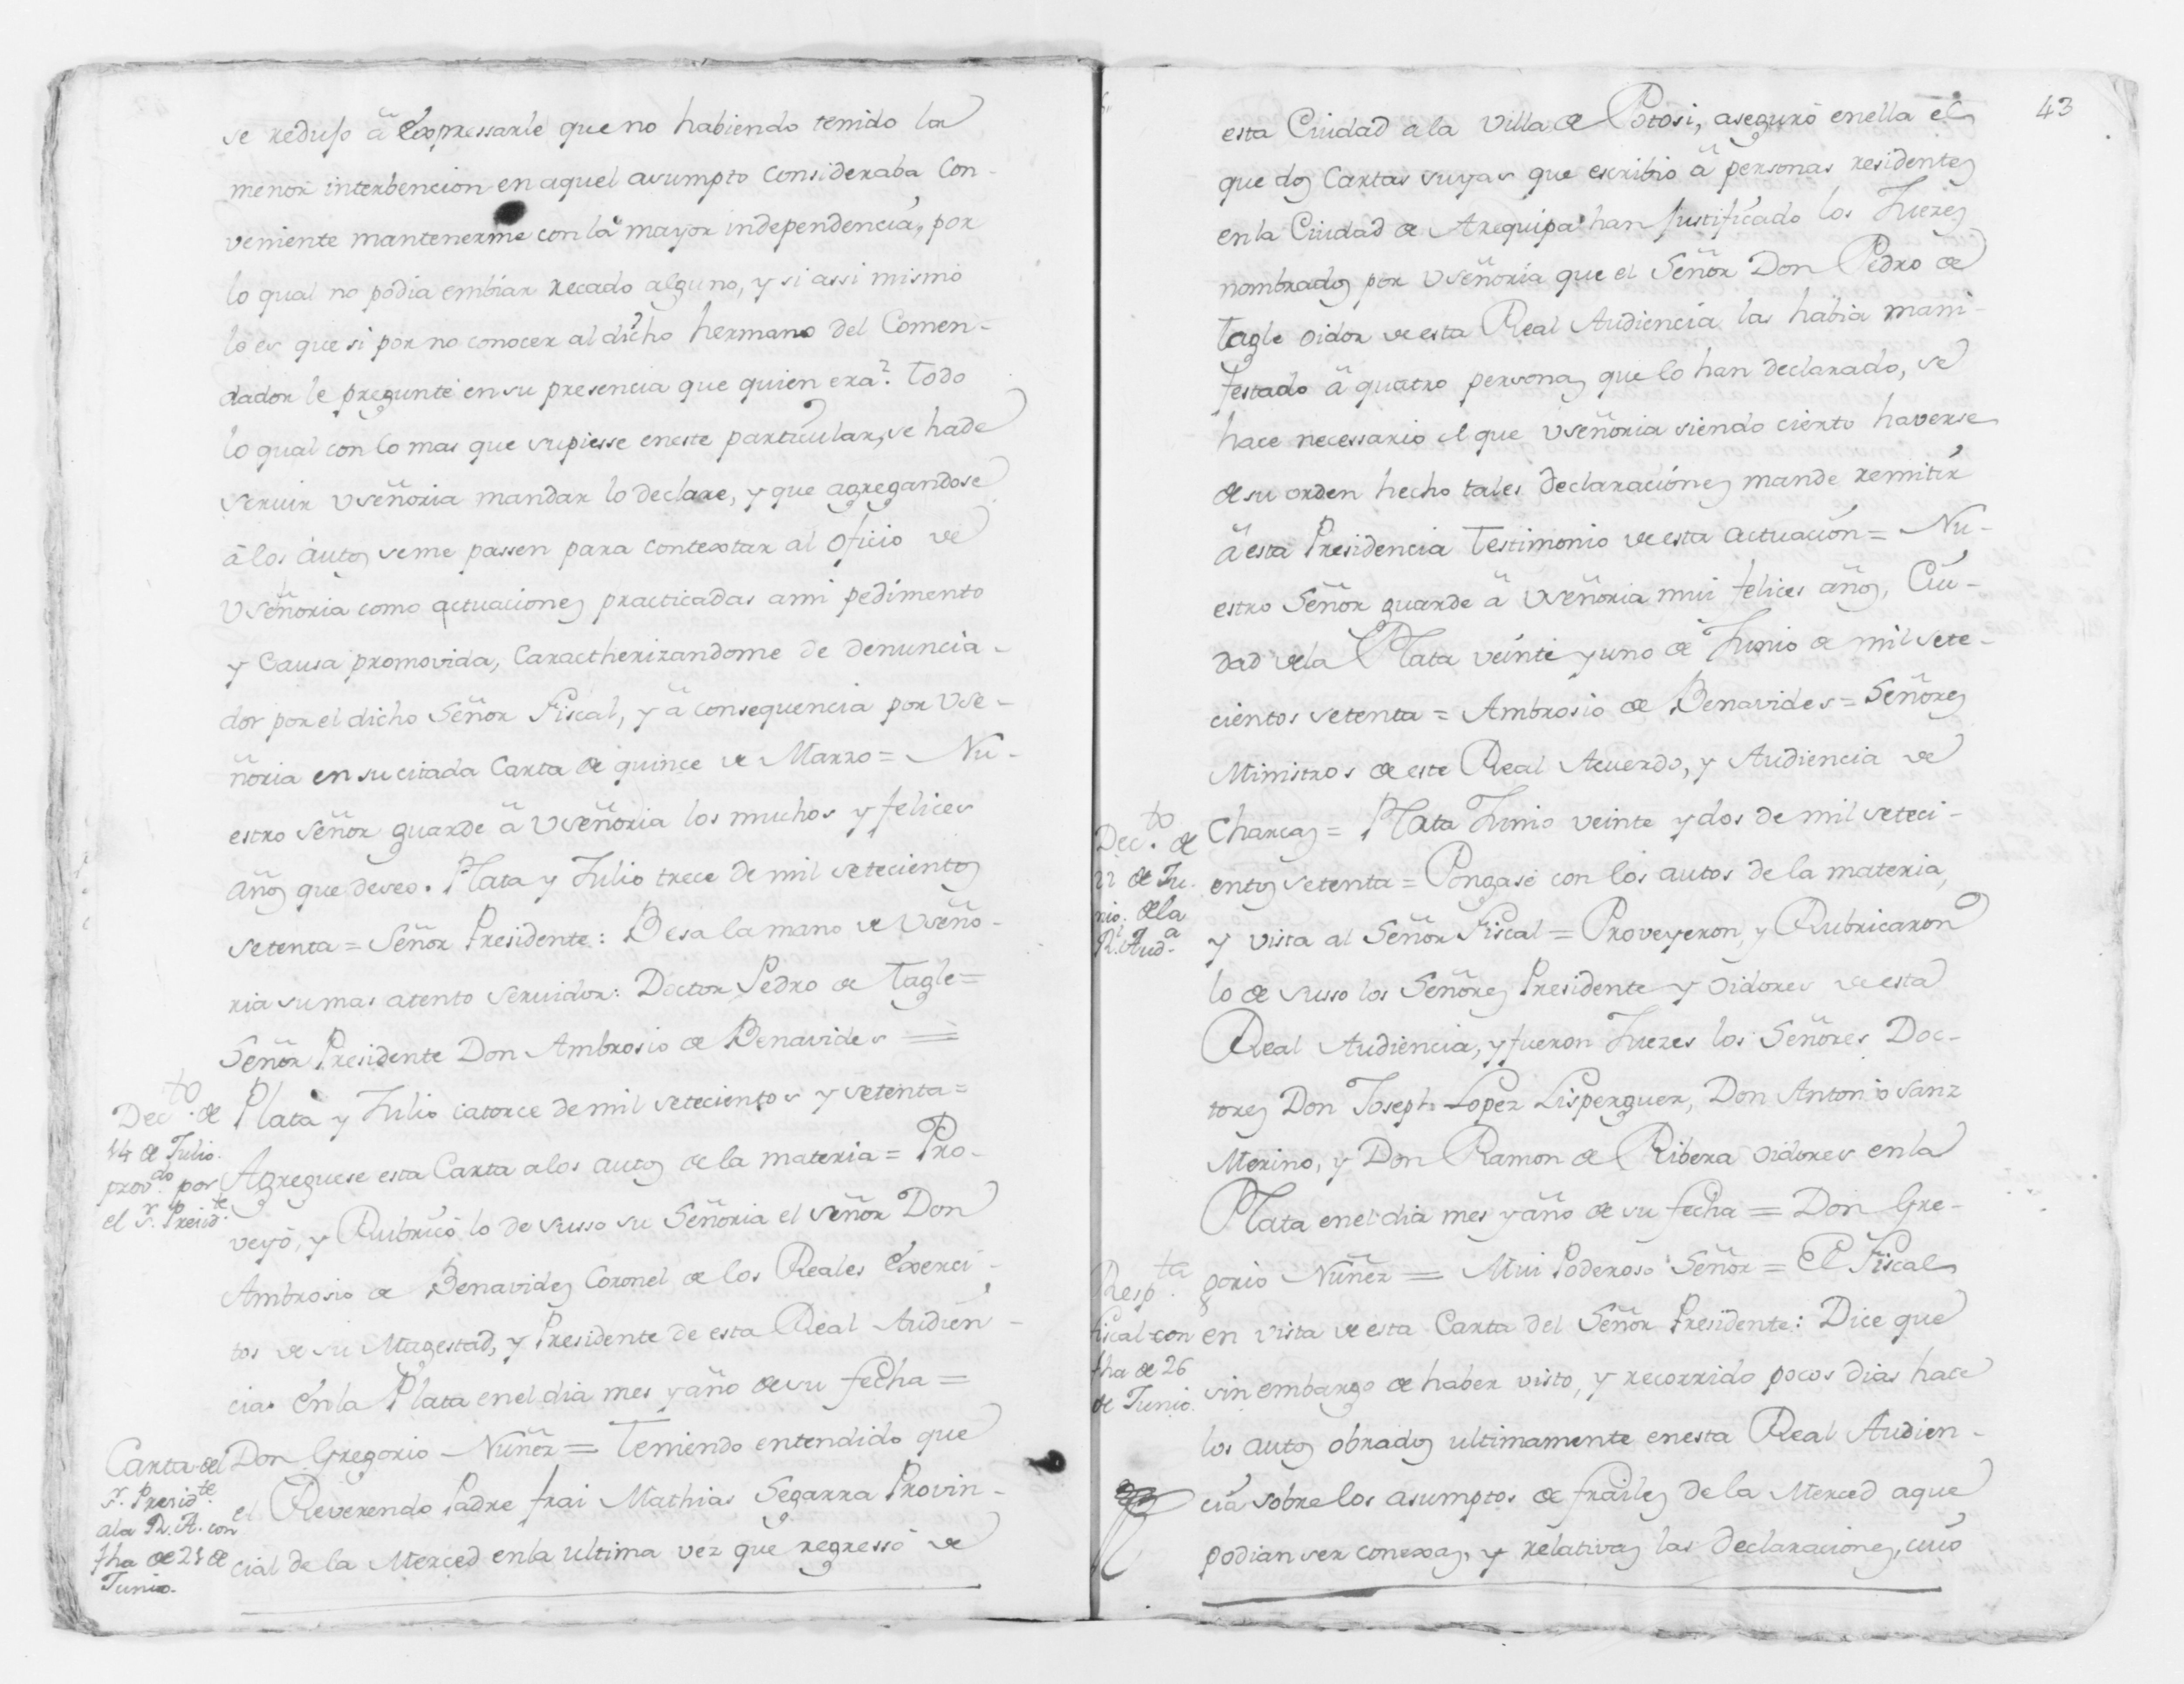 se redujo â Expressarle que no habiendo tenido la
menor interbencion en aquel asumpto consideraba con-
veniente mantenerme con la mayor independencia, por
lo qual no podia embiar recado alguno, y si assi mismo
lo es que si por no conocer al dicho hermano del Comen-
dador le pregunté en su presencia que quien era? Todo
lo qual con lo mas que supiesse en este particular, se hade
servir Vseñoria mandar lo declare, y que agregandose
â los autos se me passen para contextar al oficio de
Vseñoria como actuaciones practicadas a mi pedimento
y Causa promovida, Caractherizandome de denuncia-
dor por el dicho Señor Fiscal, y â consequencia por Vse-
ñoria en su citada Carta de quince de Marzo = Nu-
estro Señor guarde â Vseñoria los muchos y felices
años que deseo. Plata y Julio trece de mil setecientos
setenta = Señor Presidente: Besa la mano de Vseño-
ria su mas atento servidor: Doctor Pedro de Tagle =
Señor Presidente Don Ambrosio de Benavides =
Dec.to de
14 de Julio
prov.do por
el S.r Presid.te
Plata y Julio catorce de mil setecientos y setenta =
Agreguese esta Carta a los autos de la materia = Pro-
veyó, y Rubricó lo de susso su Señoria el señor Don
Ambrosio de Benavides Coronel de los Reales Exerci-
tos de su Magestad, y Presidente de esta Real Audien-
cia. En la Plata en el dia mes y año de su fecha =
Carta del
S.r Presid.te
a la R. A. con
fha de 21 de
Junio.
Don Gregorio Nuñez = Teniendo entendido que
el Reverendo Padre frai Mathias Segarra Provin-
cial de la Merced en la ultima vez que regressó de
43
esta Ciudad a la Villa de Potosi, aseguró en ella el
que dos Cartas suyas que escribio â personas residentes
en la Ciudad de Arequipa han justificado los Juezes
nombrados por Vseñoria que el Señor Don Pedro de
Tagle oidor de esta Real Audiencia las habia mani-
festado â quatro personas que lo han declarado, se
hace necessario el que Vseñoria siendo cierto haverse
de su orden hecho tales declaraciones mande remitir
â esta Presidencia Testimonio de esta actuacion = Nu-
estro Señor guarde â Vseñoria mui felices años, Ciu-
dad de la Plata veinte y uno de Junio de mil sete-
cientos setenta = Ambrosio de Benavides = Señores
Ministros de este Real Acuerdo, y Audiencia de
Dec.to de
22 de Ju-
nio. de la
R.l Aud.a
Charcas = Plata Junio veinte y dos de mil seteci-
entos setenta = Pongase con los autos de la materia,
y vista al Señor Fiscal = Proveyeron, y Rubricaron
lo de susso los Señores Presidente y Oidores de esta
Real Audiencia, y fueron Juezes los Señores Doc-
tores Don Joseph Lopez Lisperguer, Don Antonio Sanz
Merino, y Don Ramon de Ribera oidores en la
Plata en el dia mes y año de su fecha = Don Gre-
Resp.ta
fiscal con
fha de 26
de Junio.
gorio Nuñez = Mui Poderoso Señor = El Fiscal
en vista de esta Carta del Señor Presidente: Dice que
sin embargo de haber visto, y recorrido pocos dias hace
los autos obrados ultimamente en esta Real Audien-
cia sobre los asumptos de frailes de la Merced a que
podian ser conexas, y relativas las declaraciones, cuio